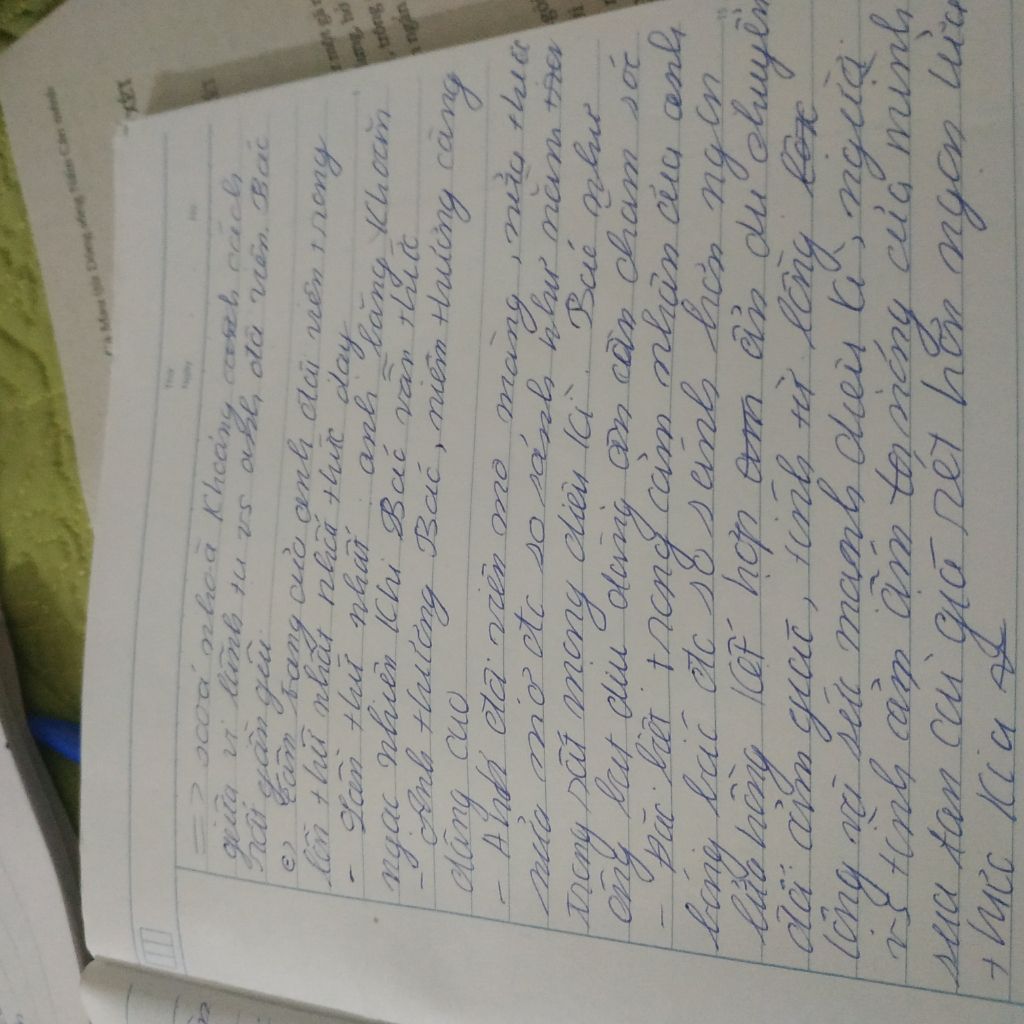 => xoá nhoà khoảng cách
giữa vị lãnh tụ vs anh đội viên. Bác
rất gần gũi
c) Tâm trạng của anh đội viên trong
lần thứ nhất nhất thức dạy
- Lần thứ nhất anh băng khoăn
ngạc nhiên khi Bác vẫn thức
- Anh thương Bác, niềm thương càng
dâng cao
- Anh đội viên mơ màng, nửa thức
nửa mơ đc so sánh như nằm
trong rất mong diệu kì. Bác như
ông bụt dịu dàng ân cần chăm sóc
- Đặc biệt trong cảm nhận của anh
bóng bác đc so sánh hơn ngọn
lửa hồng kết hợp ẩn dụ chuyển
đổi cảm giác, tính từ lồng
lộng và sức mạnh diệu kì, nghĩa
vs tình cảm ấm nóng của mình
sua tan cái giá rét hơn ngọn lửa
thực kia